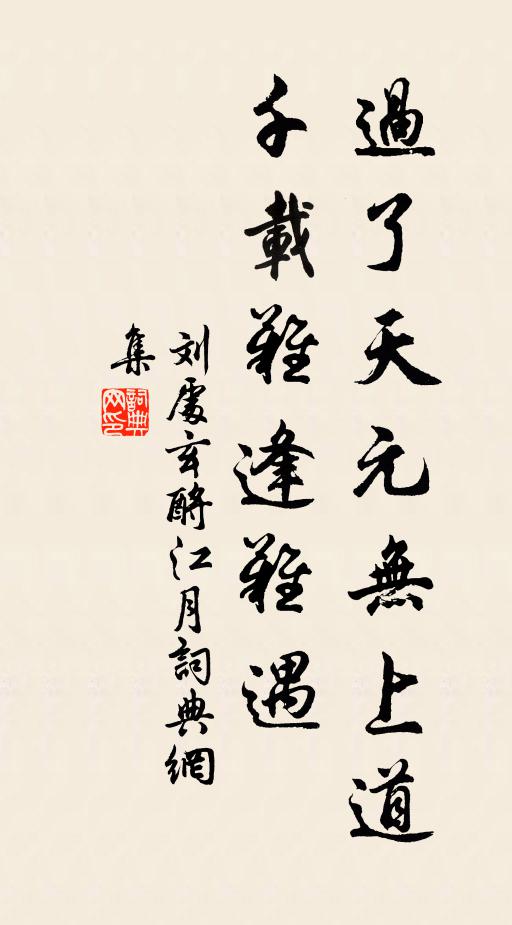 過了天元無上道
千載難逢難遇
刘處玄酹江月詞典網
集
詞典网印